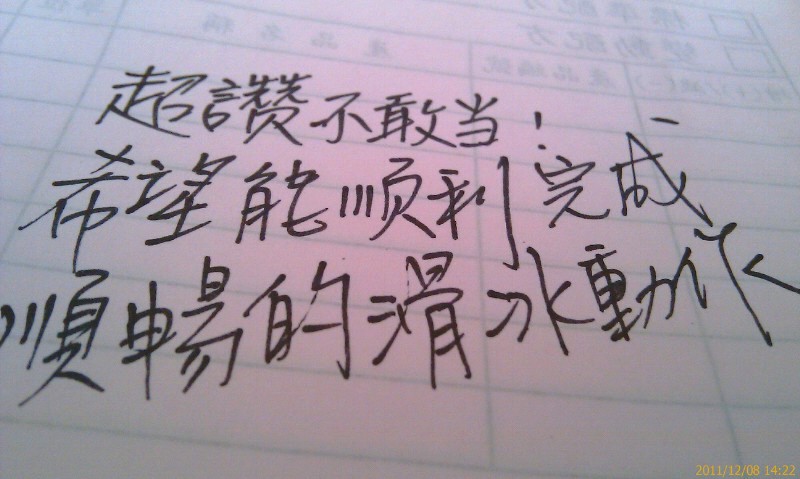 超讚不敢当!
希望能順利完成
順暢的滑冰動作
2011/12/08 14:22